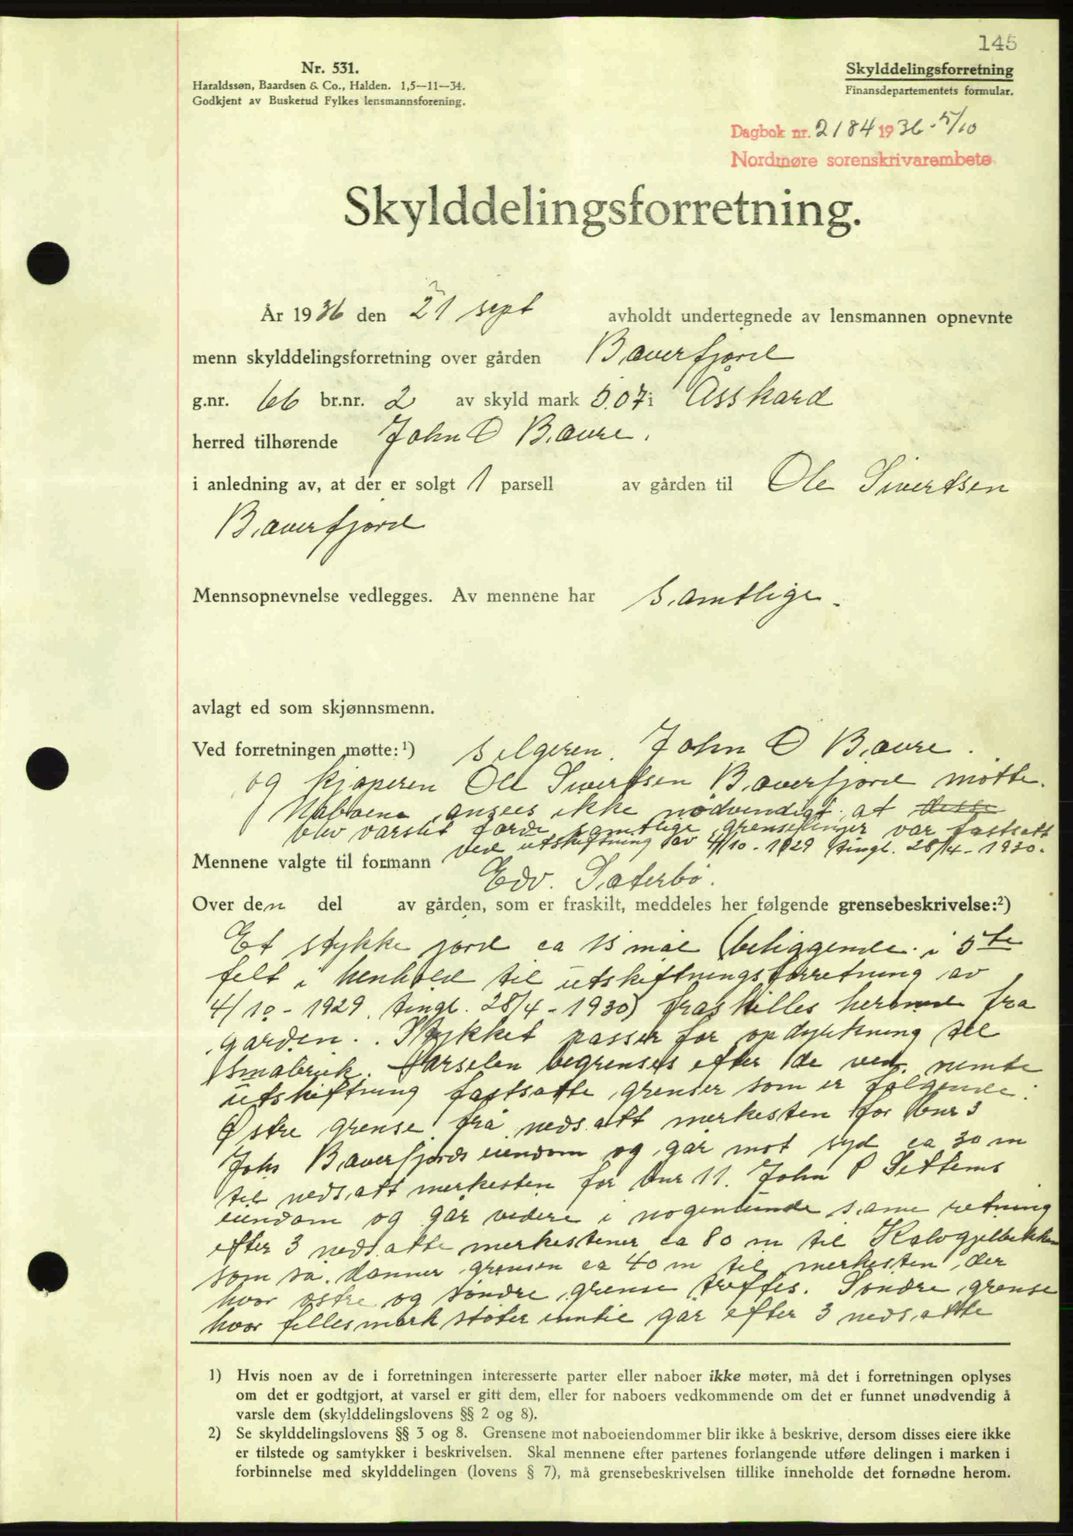 145
Nr. 531.
Haraldssøn, Baardsen & Co., Halden. 1,5—11—34.
Godkjent av Buskerud Fylkes lensmannsforening.
Skylddelingsforretning
Finansdepartementets formular.
Dagbok nr. 2184 1936 - 5/10
Nordmøre sorenskrivarembete
Skylddelingsforretning.
År 1936 den 21 sept avholdt undertegnede av lensmannen opnevnte
menn skylddelingsforretning over gården Bæverfjord
g.nr. 66 br.nr. 2 av skyld mark 5.07 i Åsskard
herred tilhørende John O Bævre.
i anledning av, at der er solgt 1 parsell av gården til Ole Sivertsen
Bæverfjord
Mennsopnevnelse vedlegges. Av mennene har samtlige.
avlagt ed som skjønnsmenn.
Ved forretningen møtte:¹) selgeren John O Bævre.
og kjøperen Ole Sivertsen Bæverfjord møtte.
Naboene ansees ikke nødvendigt at disse
blev varslet fordi samtlige grenselinjer var fastsatt
ved utskiftning av 4/10 - 1929 tingl. 28/4 - 1930.
Mennene valgte til formann Edv. Sæterbø.
Over den del av gården, som er fraskilt, meddeles her følgende grensebeskrivelse:²)
Et stykke jord ca 15 mål (beliggende i 5te
felt i henhold til utskiftningsforretning av
4/10 - 1929 tingl. 28/4 - 1930) fraskilles herved fra
garden. Stykket passer for opdyrkning til
småbruk. Parselen begrenses efter de ved nemte
utskiftning fastsatte grenser som er følgende:
Østre grense fra nedsatt merkesten for bnr 3
Johs Bæverfjords eiendom og går mot syd ca 30 m
til nedsatt merkesten for bnr 11. John P Settems
eiendom og går videre i nogenlunde same retning
efter 3 nedsatte merkestener ca 80 m til Kalvgjelbekken
som så danner grensen ca 40 m til merkesten der
hvor østre og søndre grense treffes. Søndre grense
hvor fellesmark støter inntil går efter 3 nedsatte
1) Hvis noen av de i forretningen interesserte parter eller naboer ikke møter, må det i forretningen oplyses
om det er godtgjort, at varsel er gitt dem, eller for naboers vedkommende om det er funnet unødvendig å
varsle dem (skylddelingslovens §§ 2 og 8).
2) Se skylddelingslovens §§ 3 og 8. Grensene mot naboeiendommer blir ikke å beskrive, dersom disses eiere ikke
er tilstede og samtykker i beskrivelsen. Skal mennene efter partenes forlangende utføre delingen i marken i
forbinnelse med skylddelingen (lovens § 7), må grensebeskrivelsen tillike inneholde det fornødne herom.